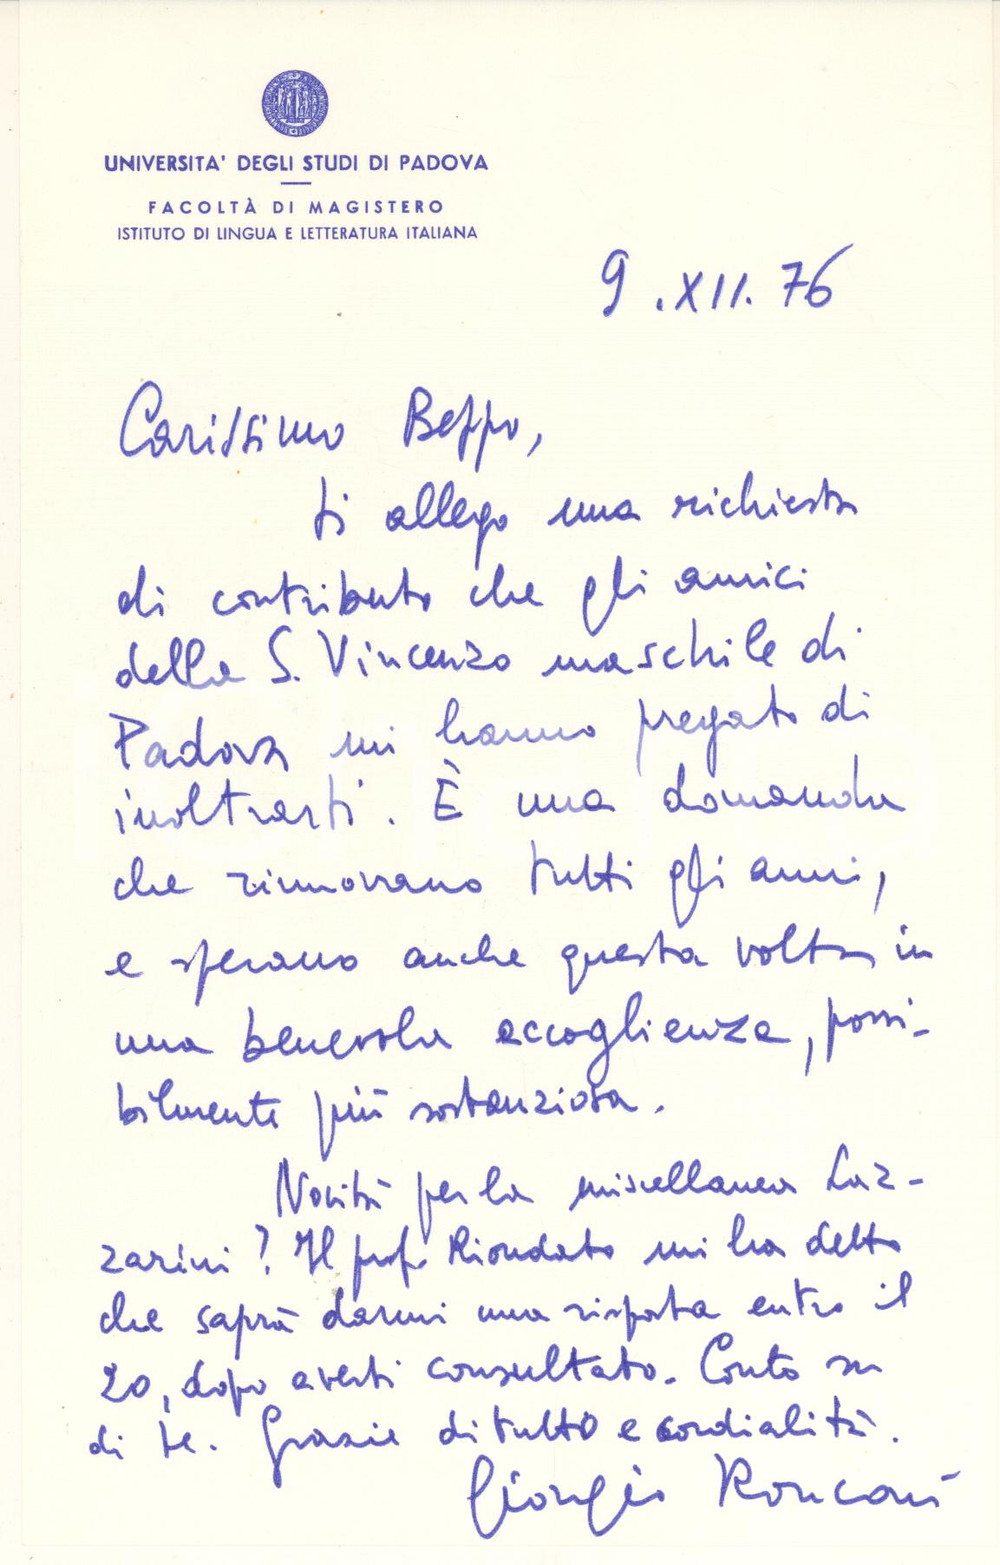 UNIVERSITA' DEGLI STUDI DI PADOVA
FACOLTÀ DI MAGISTERO
ISTITUTO DI LINGUA E LETTERATURA ITALIANA
9.XII.76
Carissimo Beppo,
ti allego una richiesta
di contributo che gli amici
della S. Vincenzo maschile di
Padova mi hanno pregato di
inoltrarti. È una domanda
che rinnovano tutti gli anni,
e sperano anche questa volta in
una benevola accoglienza, possi-
bilmente più sostanziosa.
Novità per la miscellanea Laz-
zarini? Il prof. Riondato mi ha detto
che saprà darmi una risposta entro il
20, dopo averti consultato. Conto su
di te. Grazie di tutto e cordialità.
Giorgio Ronconi